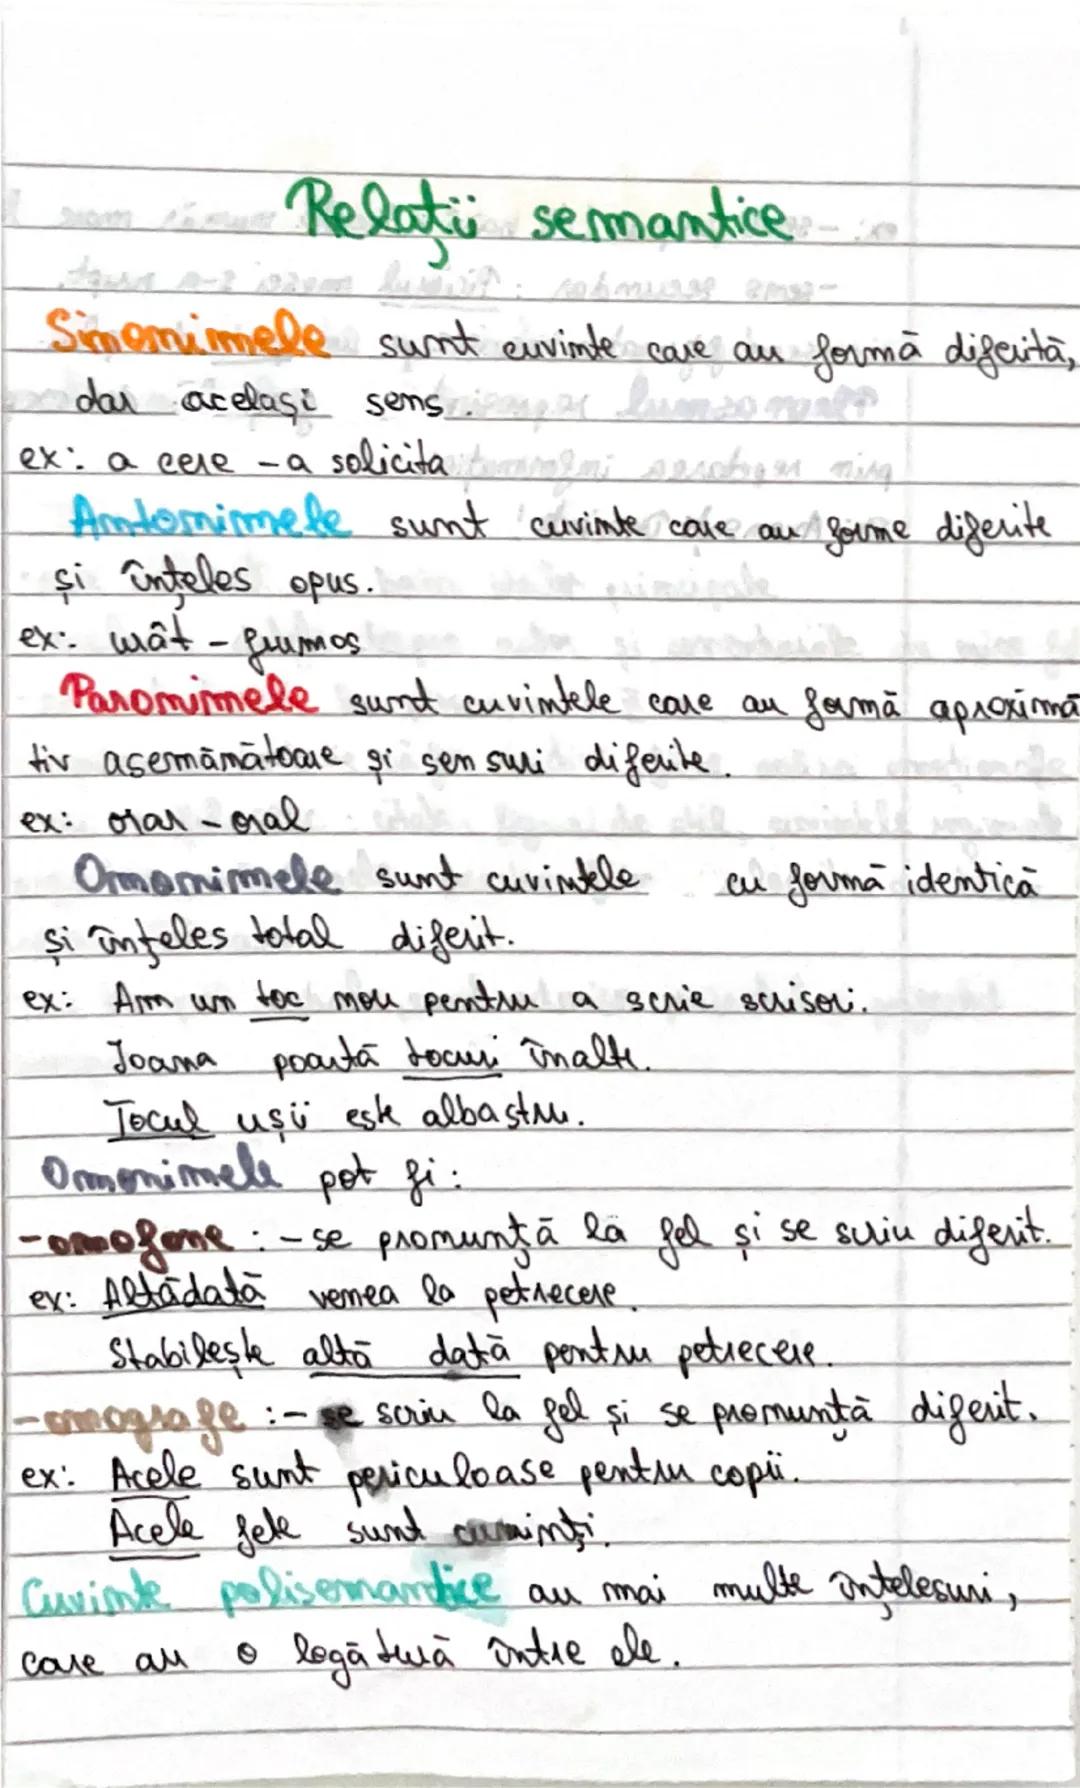 Relații semantice
Sinonimele sunt cuvinte care au formă diferită,
dar același sens.
ex: a cere - a solicita
Antonimele sunt cuvinte care au forme diferite
și înțeles opus.
ex: urât - frumos
Paronimele sunt cuvintele care au formă aproximă
tiv asemănătoare și sensuri diferite.
ex: orar - oral
Omonimele sunt cuvintele cu formă identică
și înțeles total diferit.
ex: Am un toc nou pentru a scrie scrisori.
Ioana poartă tocuri înalte.
Tocul ușii este albastru.
Omonimele pot fi:
- omofone : - se pronunță la fel și se scriu diferit.
ex: Altădată venea la petrecere.
Stabilește altă dată pentru petrecere.
- omografe : - se scriu la fel și se pronunță diferit.
ex: Acele sunt periculoase pentru copii.
Acele fete sunt cuminți.
Cuvinte polisemantice au mai multe înțelesuri,
care au o legătură între ele.